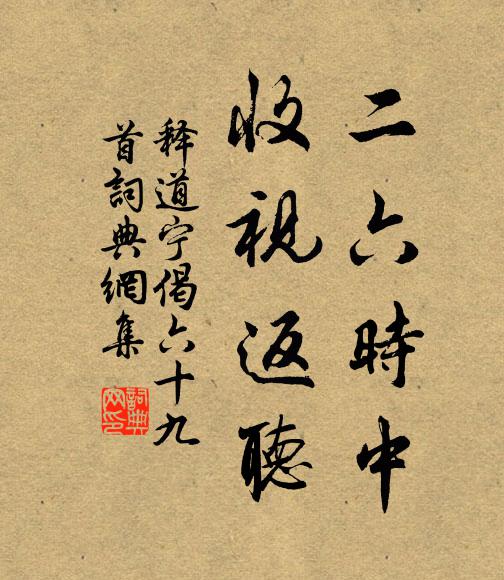 二六時中
收視返聽
释道宁偈六十九
首詞典網集
詞典網印